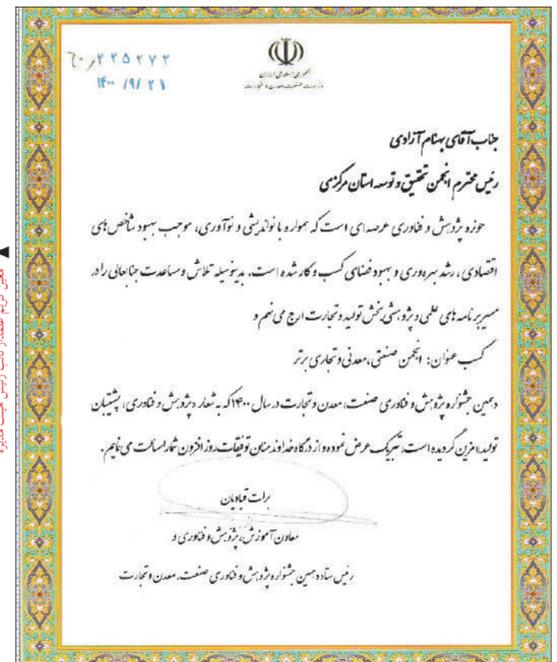 ۶۰/۲۲۵۲۷۲
۱۴۰۰/۹/۲۱
جمهوری اسلامی ایران
وزارت صنعت، معدن و تجارت
جناب آقای بهنام آزادی
رئیس محترم انجمن تحقیق و توسعه استان مرکزی
حوزه پژوهش و فناوری عرصه‌ای است که همواره با نواندیشی و نوآوری، موجب بهبود شاخص‌های
اقتصادی، رشد بهره‌وری و بهبود فضای کسب و کار شده است. بدینوسیله تلاش و مساعدت جنابعالی را در
مسیر برنامه‌های علمی و پژوهشی بخش تولید و تجارت ارج می‌نهم و
کسب عنوان: انجمن صنعتی، معدنی و تجاری برتر
دهمین جشنواره پژوهش و فناوری صنعت، معدن و تجارت در سال ۱۴۰۰ که به شعار «پژوهش و فناوری، پشتیبان
تولید» مزین گردیده است، تبریک عرض نموده و از درگاه خداوند منان توفیقات روز افزون شما را مسألت می‌نمایم.
برات قبادیان
معاون آموزش، پژوهش و فناوری و
رئیس ستاد دهمین جشنواره پژوهش و فناوری صنعت، معدن و تجارت
نائب رئیس هیئت مدیره